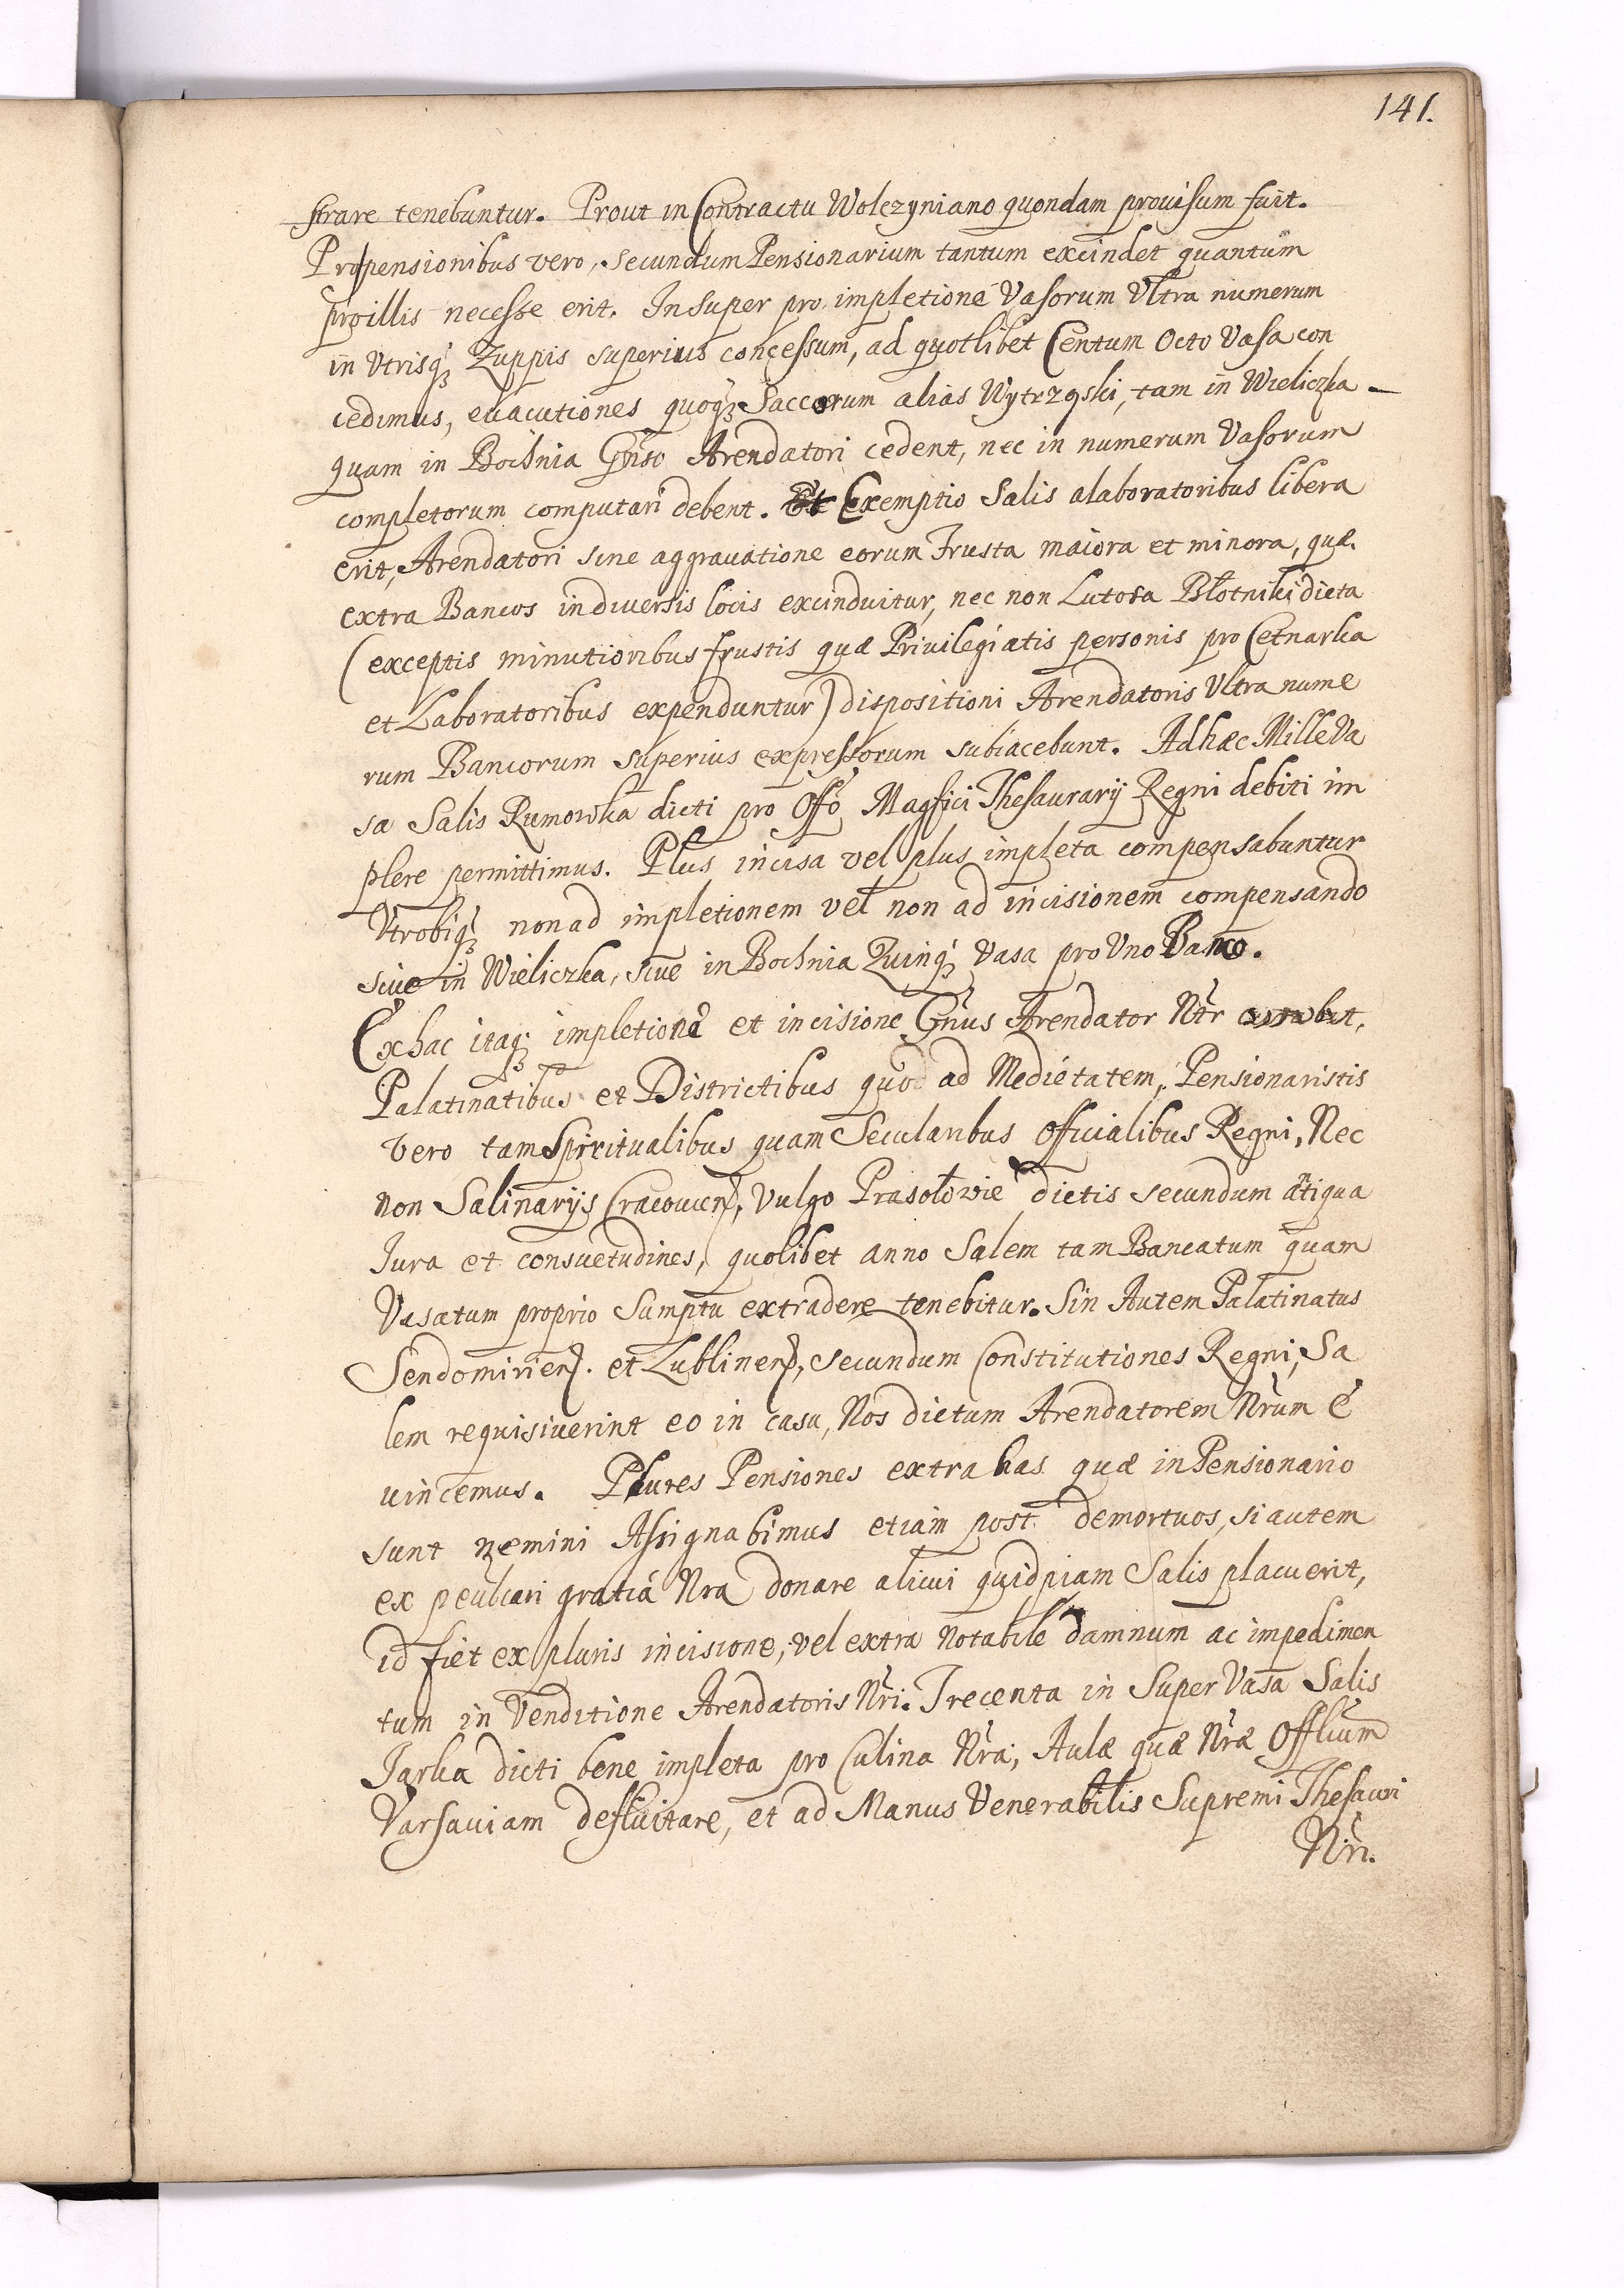 141.
strare tenebuntur. Prout in Contractu Wolczyniano quondam prouisum fuit.
Pro pensionibus vero, secundum Pensionarium tantum excindet quantum
pro illis necesse erit. Insuper pro impletione Vasorum Vltra numerum
in Vtrisq; Zuppis superius concessum, ad quotlibet Centum Octo Vasa con
cedimus, euacutiones quoq; Saccorum alias Wytrząski, tam in Wieliczka –
quam in Bochnia Gñso Arendatori cedent, nec in numerum Vasorum
completorum computari debent. Exemptio Salis a laboratoribus libera
erit, Arendatori sine aggrauatione eorum Frusta maiora et minora, quæ
extra Bancos in diuersis locis excinduitur, nec non Lutosa Błotniki dicta
(exceptis minutioribus frustis quæ Priuilegiatis personis pro Cetnarka
et Laboratoribus expenduntur) dispositioni Arendatoris Vltra nume
rum Bancorum superius expressorum subiacebunt. Ad hæc Mille Va
sa Salis Rumowka dicti pro Offõ Magfici Thesaurarij Regni debiti im
plere permittimus. Plus incisa vel plus impleta compensabuntur
Vtrobiq; non ad impletionem vel non ad incisionem compensando
siue in Wieliczka, siue in Bochnia Quinq; Vasa pro Vno Banco.
Ex hac itaq; impletione et incisione Gñus Arendator Ntr
Palatinatibus et Districtibus quod ad Medietatem, Pensionaristis
vero tam Spiritualibus quam Secularibus Officialibus Regni, Nec
non Salinarijs Cracouien, Vulgo Prasołowie dictis secundum ãtiqua
Iura et consuetudines, quolibet anno Salem tam Bancatum quam
Vasatum proprio Sumptu extradere tenebitur. Sin Autem Palatinatus
Sendomirien. et Lublinen, secundum Constitutiones Regni, Sa
lem requisiuerint eo in casu, Nos dictum Arendatorem Nrum e
uincemus. Plures Pensiones extra has quæ in Pensionario
sunt nemini Assignabimus etiam post demortuos, si autem
ex peculiari gratiâ Nra donare alicui quidpiam Salis placuerit,
id fiet ex pluris incisione, vel extra Notabile damnum ac impedimen
tum in Venditione Arendatoris Nri. Trecenta in Super Vasa Salis
Iarka dicti bene impleta pro Culina Nra, Aulæ quæ Nræ Offlium
Varsauiam defluitare, et ad Manus Venerabilis Supremi Thesauri
Nri.